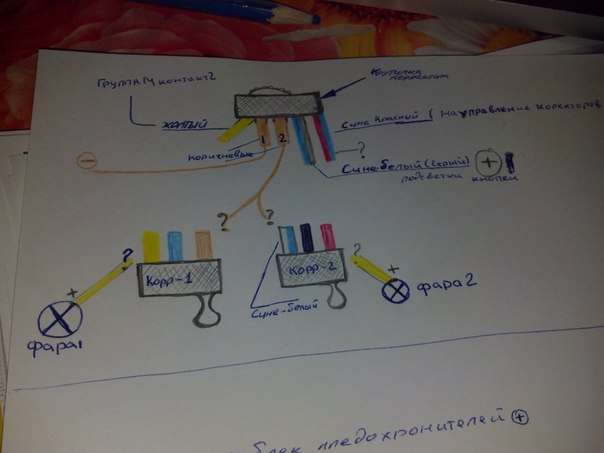 Группа Ц контакт 2
Крутилка
корректора
жёлтый
Сине красный ( На управление коректоров
коричневые
1
2
?
Сине-белый (серый) +
подсветки кнопки
−
?
?
?
?
Корр-1
Корр-2
+
+
фара1
фара 2
Сине-белый
блок предохронителей +